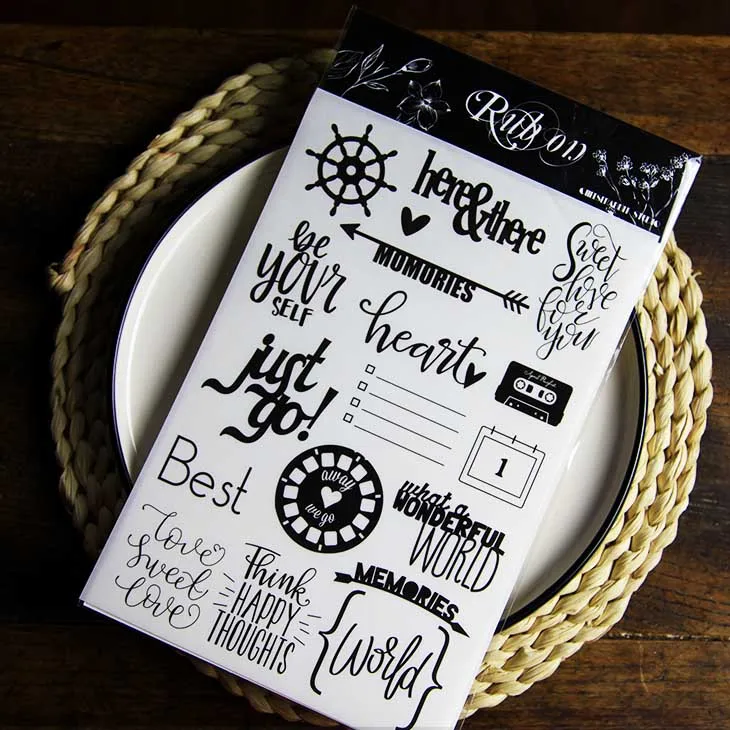 Rub on
here&there
MOMORIES
Sweet
love
for
you
be
your
SELF
heart
just
go!
1
Best
away
we go
what a
WONDERFUL
WORLD
Love
Sweet
Love
Think
HAPPY
THOUGHTS
MEMORIES
{World}